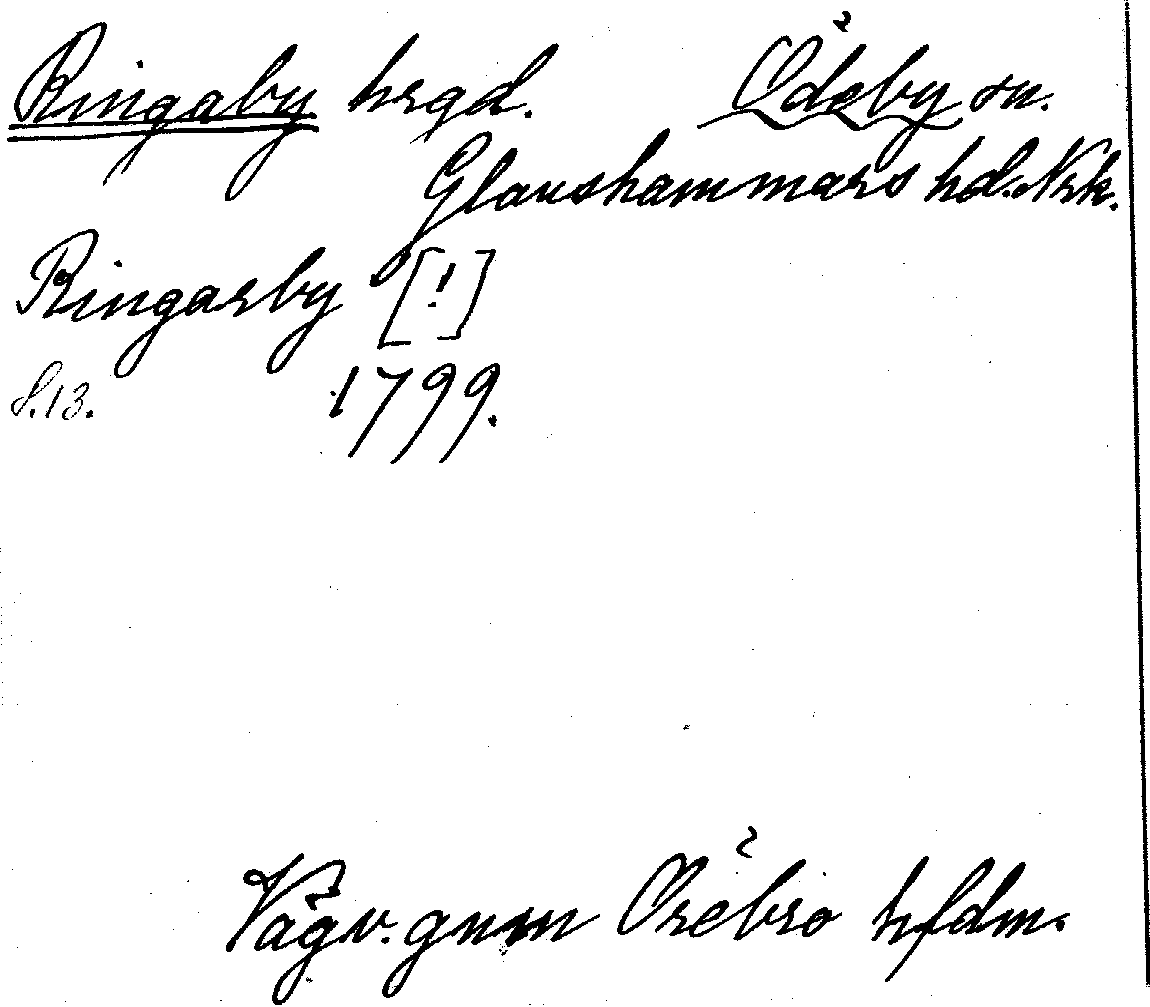 Ringaby hrgd. Ödeby sn.
Glanshammars hd. Nrk.
Ringarby [!]
S. 13. 1799.
Vägv. gnm Örebro hfdm.